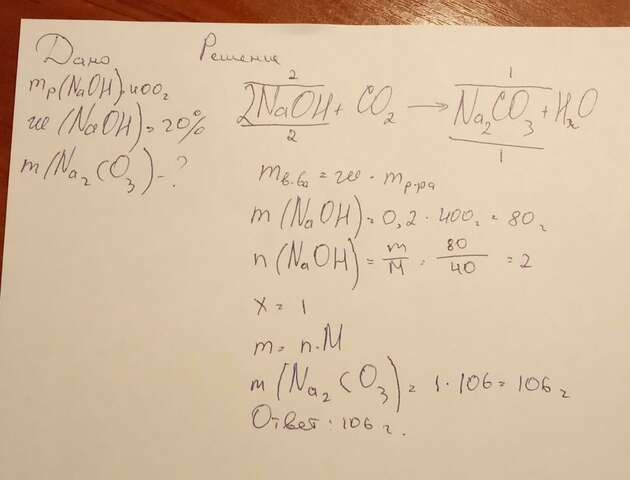 Дано
mр(NaOH) = 400г
w(NaOH) = 20%
m(Na2CO3) - ?
Решение
2 1
2NaOH + CO2 → Na2CO3 + H2O
2 1
mв-ва = w · mр-ра
m(NaOH) = 0,2 · 400г = 80г
n(NaOH) = m/M = 80/40 = 2
x = 1
m = n·M
m(Na2CO3) = 1·106 = 106г
Ответ: 106г.